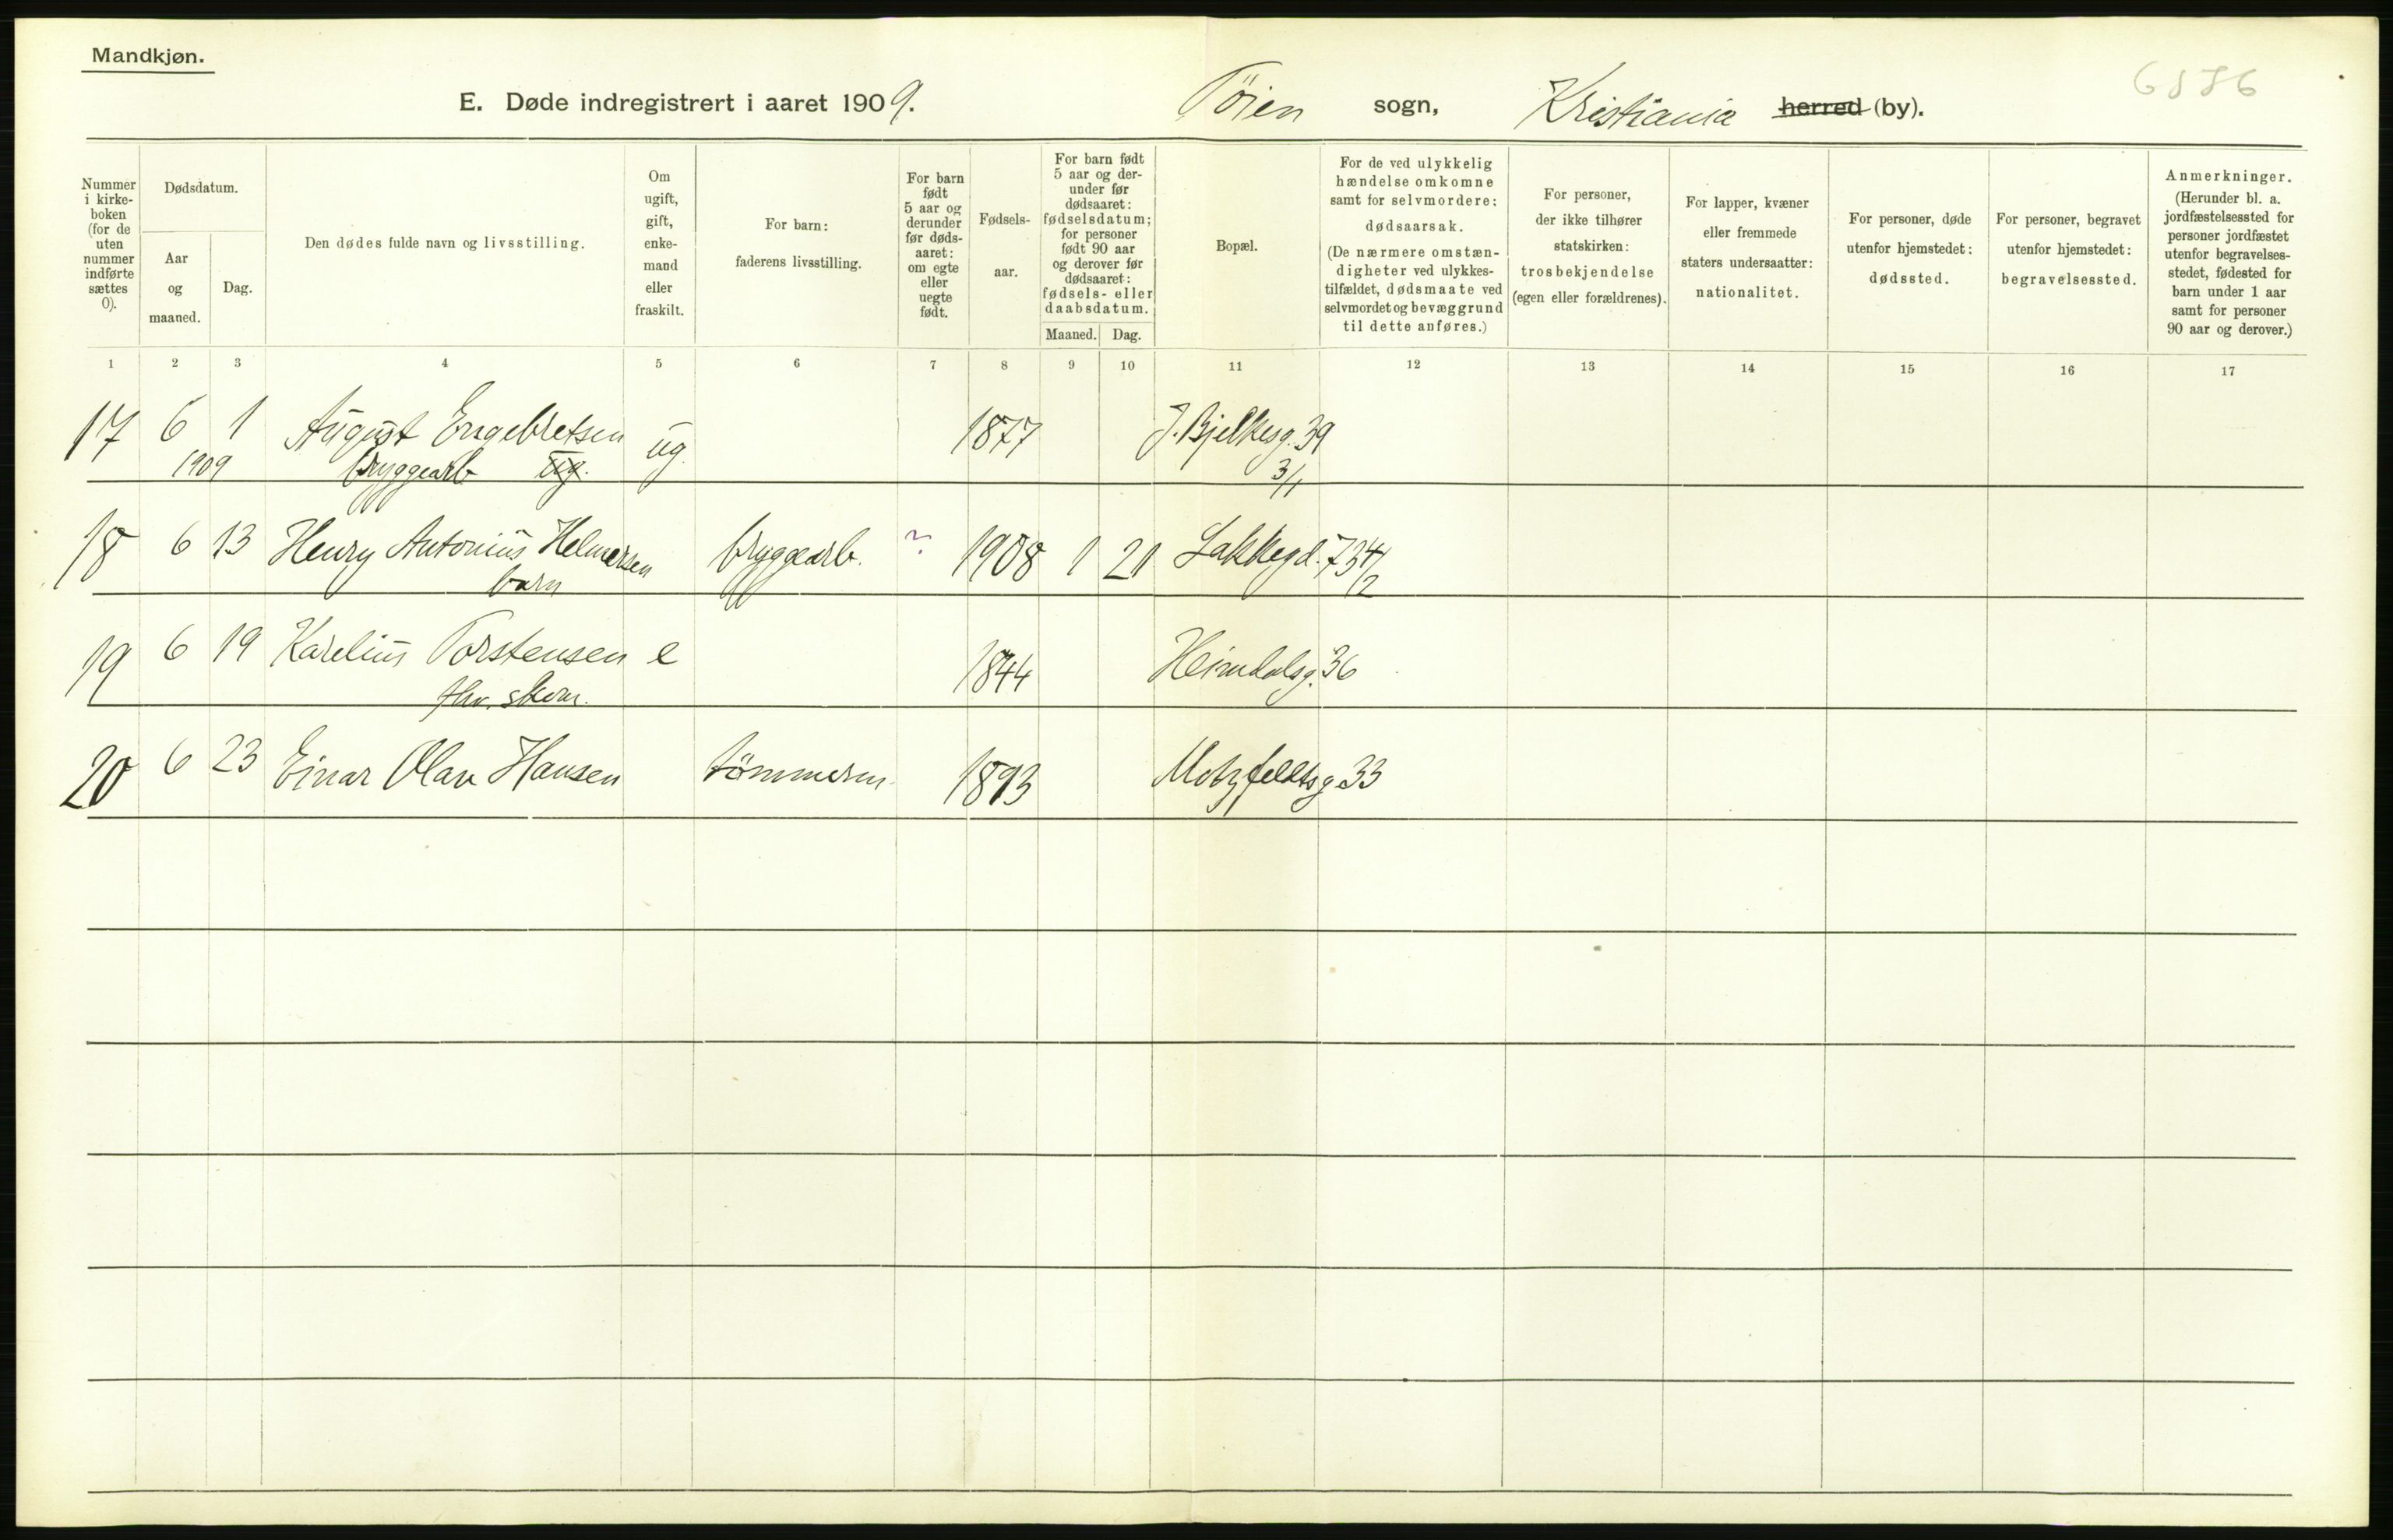 Mandkjøn.
E. Døde indregistrert i aaret 1909. Töien sogn, Kristiania herred (by).
Nummer i kirke-boken (for de uten nummer indførte sættes 0).
Dødsdatum.
Aar og maaned.
Dag.
Den dødes fulde navn og livsstilling.
Om ugift, gift, enke-mand eller fraskilt.
For barn: faderens livsstilling.
For barn født 5 aar og derunder før døds-aaret: om egte eller uegte født.
Fødsels-aar.
For barn født 5 aar og der-under før dødsaaret: fødselsdatum; for personer født 90 aar og derover før dødsaaret: fødsels- eller daabsdatum.
Maaned. Dag.
Bopæl.
For de ved ulykkelig hændelse omkomne samt for selvmordere: dødsaarsak. (De nærmere omstæn-digheter ved ulykkes-tilfældet, dødsmaate ved selvmordet og bevæggrund til dette anføres.)
For personer, der ikke tilhører statskirken: trosbekjendelse (egen eller forældrenes).
For lapper, kvæner eller fremmede staters undersaatter: nationalitet.
For personer, døde utenfor hjemstedet: dødssted.
For personer, begravet utenfor hjemstedet: begravelsessted.
Anmerkninger. (Herunder bl. a. jordfæstelsessted for personer jordfæstet utenfor begravelses-stedet, fødested for barn under 1 aar samt for personer 90 aar og derover.)
1 2 3 4 5 6 7 8 9 10 11 12 13 14 15 16 17
17 6 1 August Engebretsen ug. 1877 J. Bjelkesg. 39
1909 bryggearb ug. 3/1
18 6 13 Henry Antonius Helmersen bryggearb. ? 1908 1 21 Lakkegd. 73 4/2
barn
19 6 19 Karelius Torstensen e 1844 Heimdalsg. 36
fhv. skom.
20 6 23 Einar Olav Hansen tömmerm. 1893 Motzfeldtsg. 33